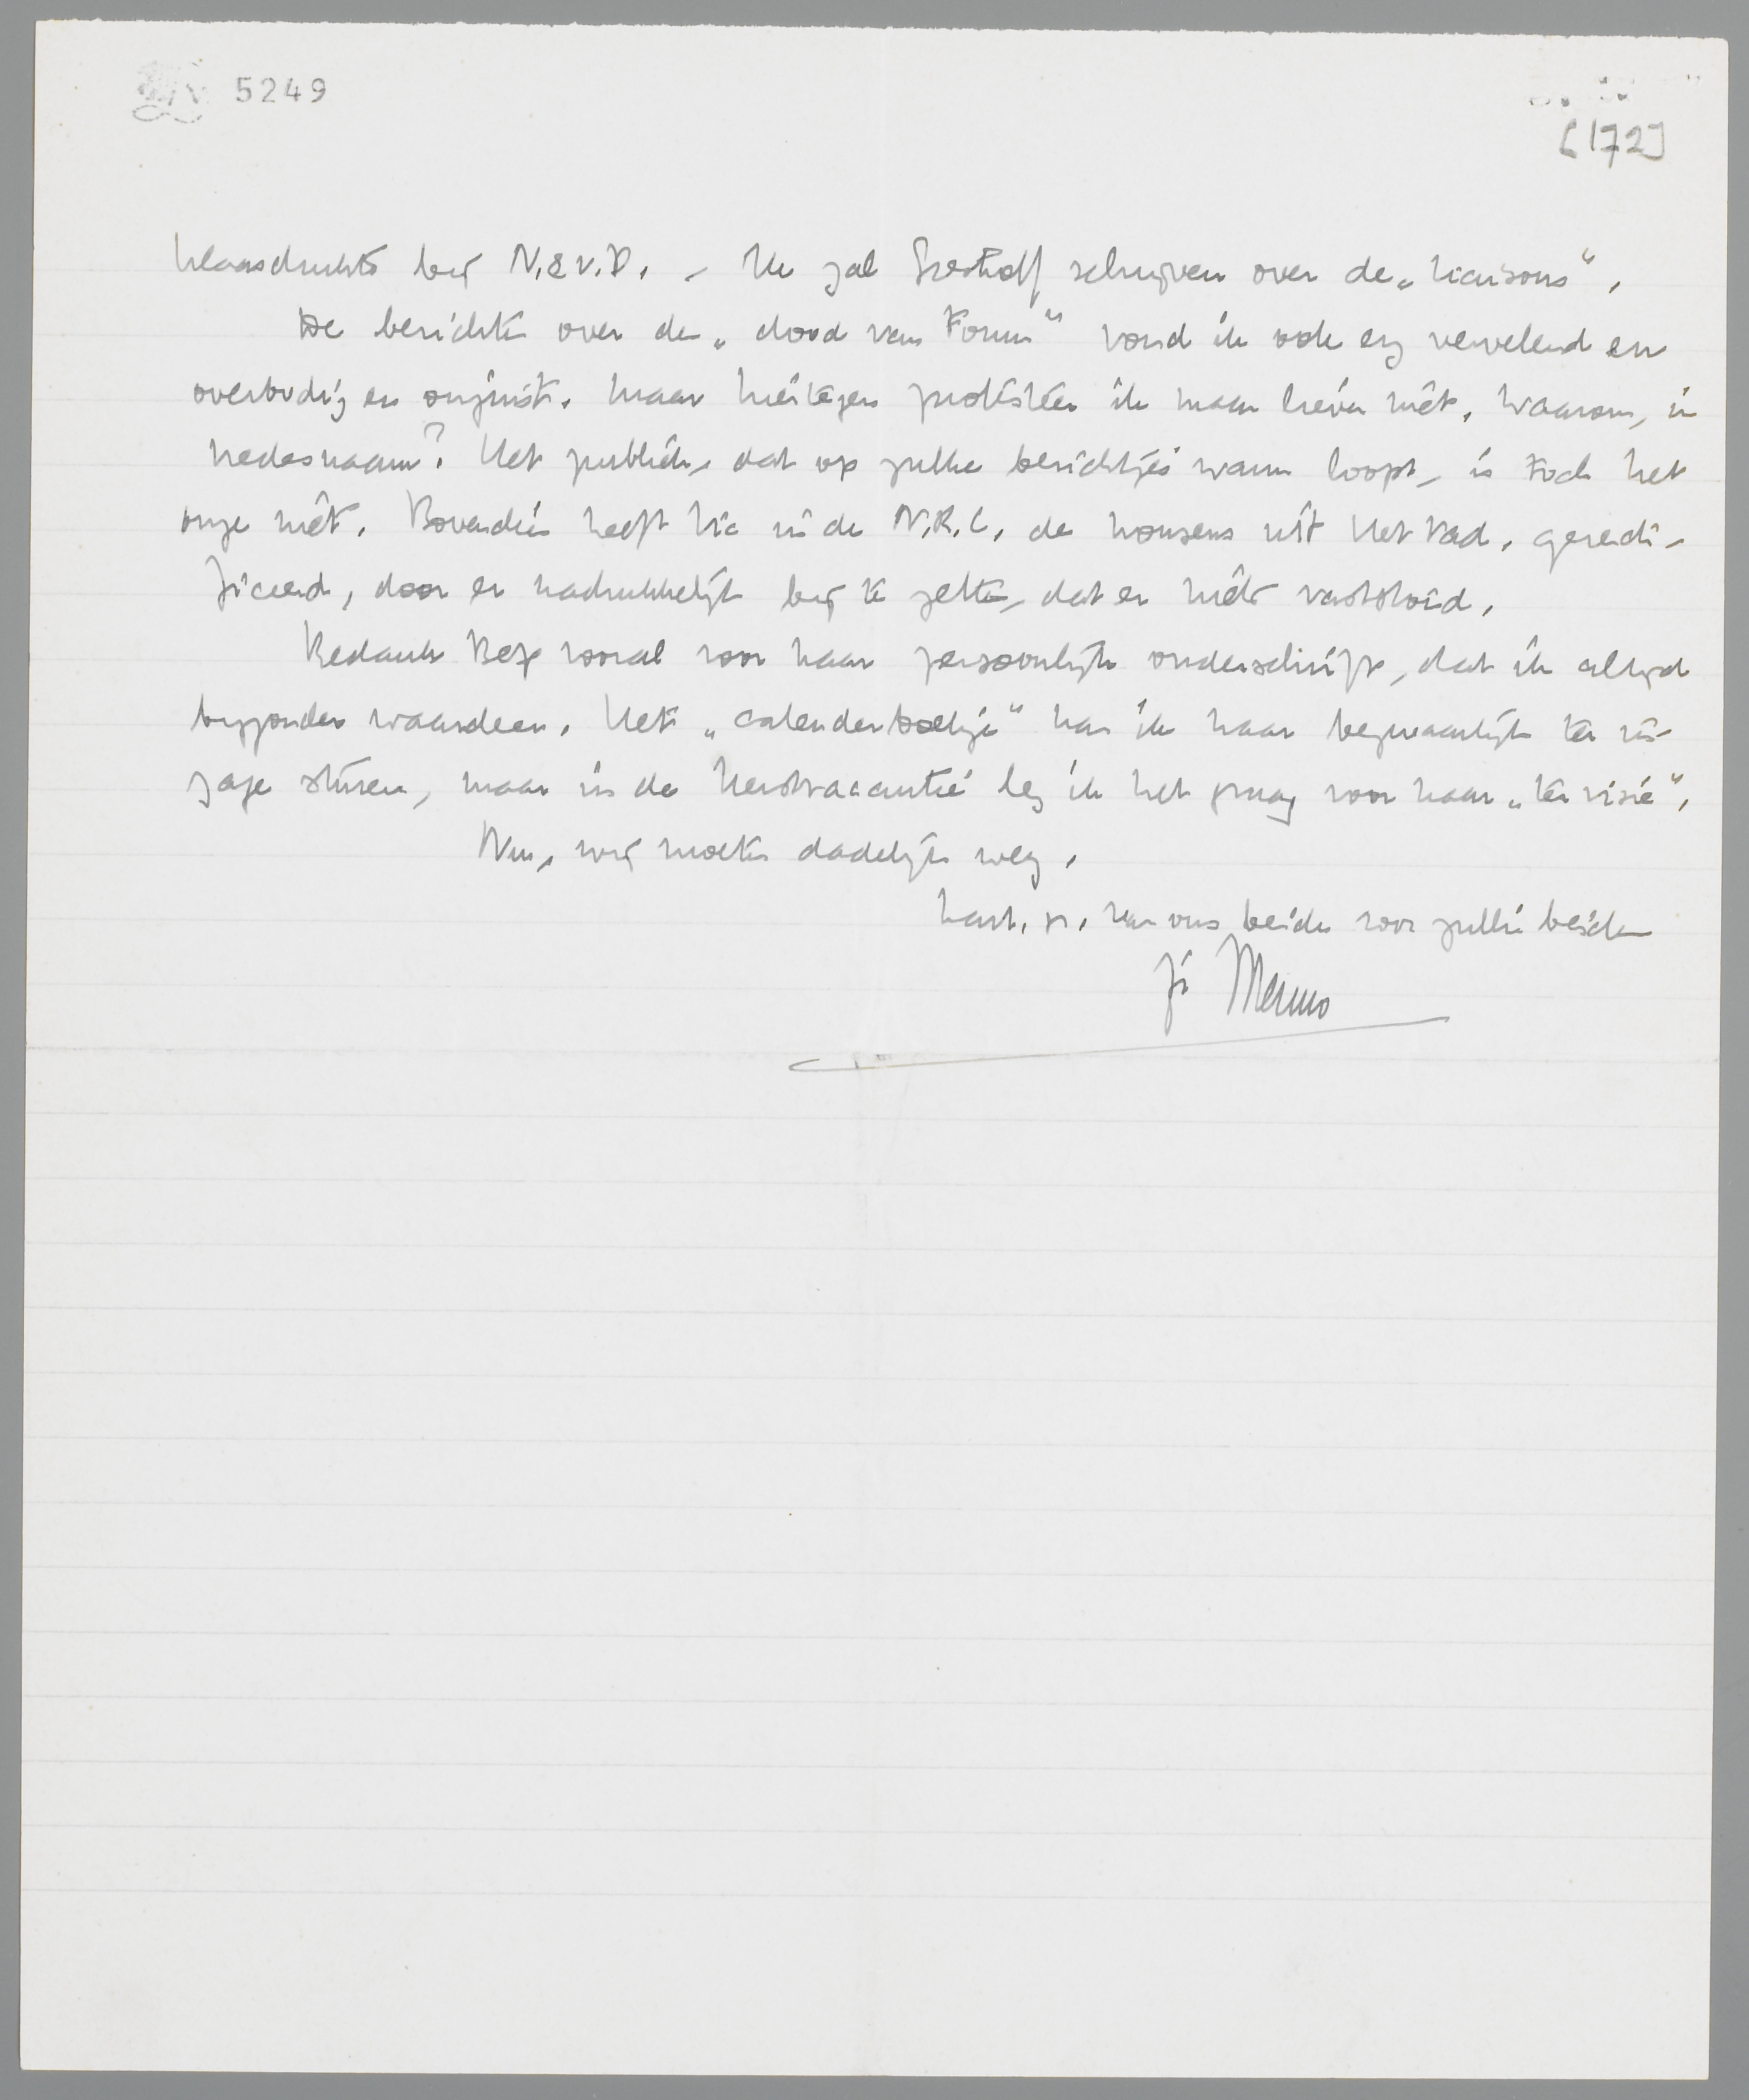 5249
[172]
klaasdrukte bij N. & v. D. – Ik zal Greshoff schrijven over de „liaisons".
De berichten over den „dood van Forum" vond ik ook erg vervelend en
overbodig en onjuist. Maar hiertegen protesteer ik maar liever niet. Waarom, in
vredesnaam? Het publiek, dat op zulke berichtjes warm loopt, is toch het
onze niet. Bovendien heeft Vic in de N.R.C. de nonsens uit Het Vad. gerecti-
ficeerd, door er nadrukkelijk bij te zetten, dat er niets vaststond.
Bedank Bep vooral voor haar persoonlijk onderschrift, dat ik altijd
bijzonder waardeer. Het „calenderboekje" kan ik haar bezwaarlijk ter in-
zage sturen, maar in de Kerstvacantie leg ik het graag voor haar „ter visie".
Nu, wij moeten dadelijk weg.
hart. gr. van ons beiden voor jullie beiden
je Menno